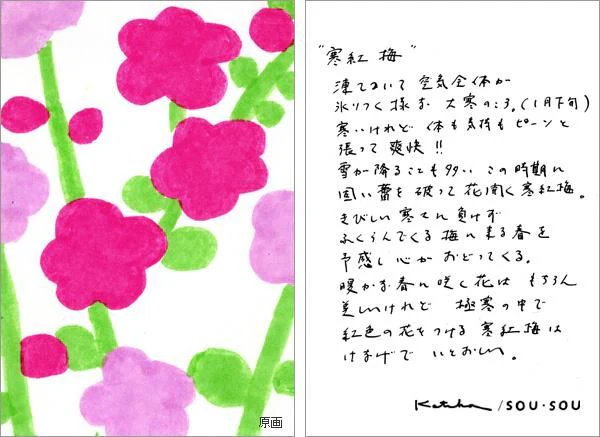 原画
"寒紅梅"
凍てついて 空気全体が
氷りつく様な 大寒のころ。(1月下旬)
寒いけれど 体も気持もピーンと
張って 爽快!!
雪が降ることも多い この時期に
固い蕾を 破って 花開く寒紅梅。
きびしい 寒さに 負けず
ふくらんでくる 梅に来る春を
予感し 心が おどってくる。
暖かな春に 咲く花は もちろん
美しいけれど 極寒の中で
紅色の花をつける 寒紅梅は
けなげで いとおしい。
/SOU・SOU